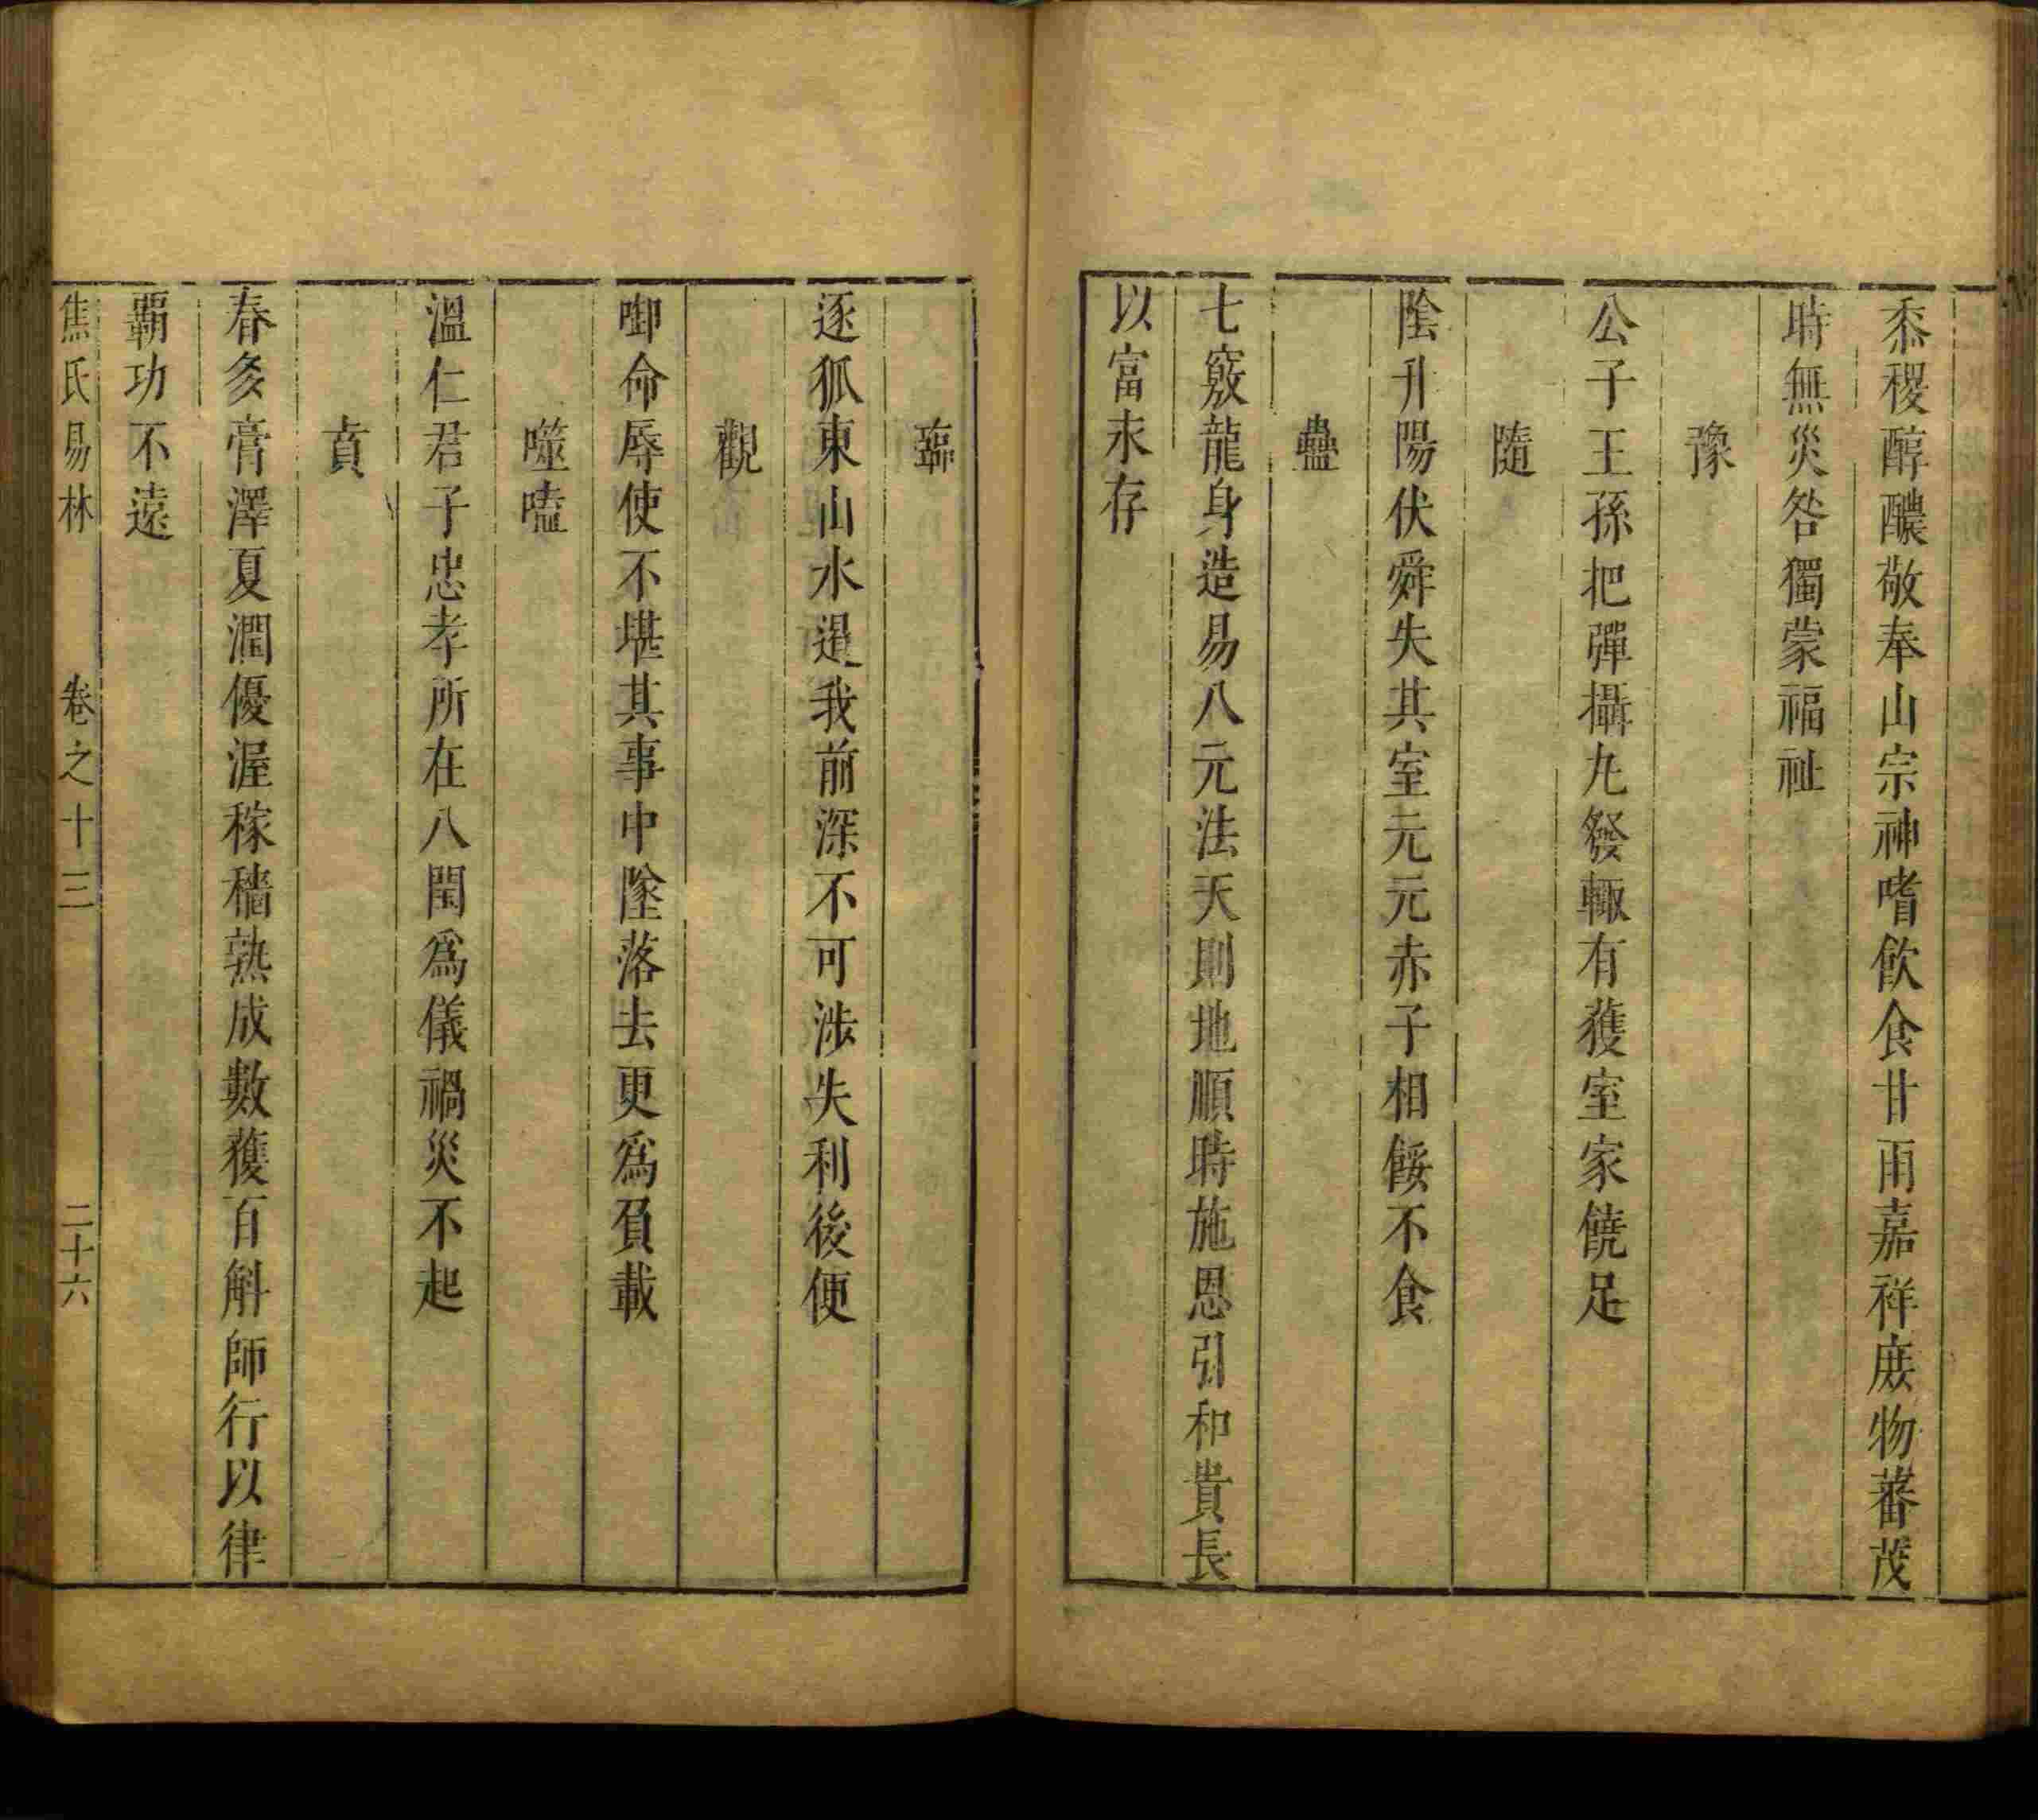 黍稷醇醲敬奉山宗神嗜飲食甘雨嘉祥庻物蕃茂
時無災咎獨蒙福祉
豫
公子王孫把彈攝九發輙有獲室家饒足
隨
陰升陽伏舜失其室元元赤子相餒不食
蠱
七竅龍身造易八元法天則地順時施恩引和貴長
以富永存
臨
逐狐東山水遏我前深不可涉失利後便
觀
啣命辱使不堪其事中墜落去更爲負載
噬嗑
溫仁君子忠孝所在八閨爲儀禍災不起
賁
春多膏澤夏潤優渥稼穡熟成數獲百斛師行以律
霸功不遠
焦氏易林 卷之十三 二十六